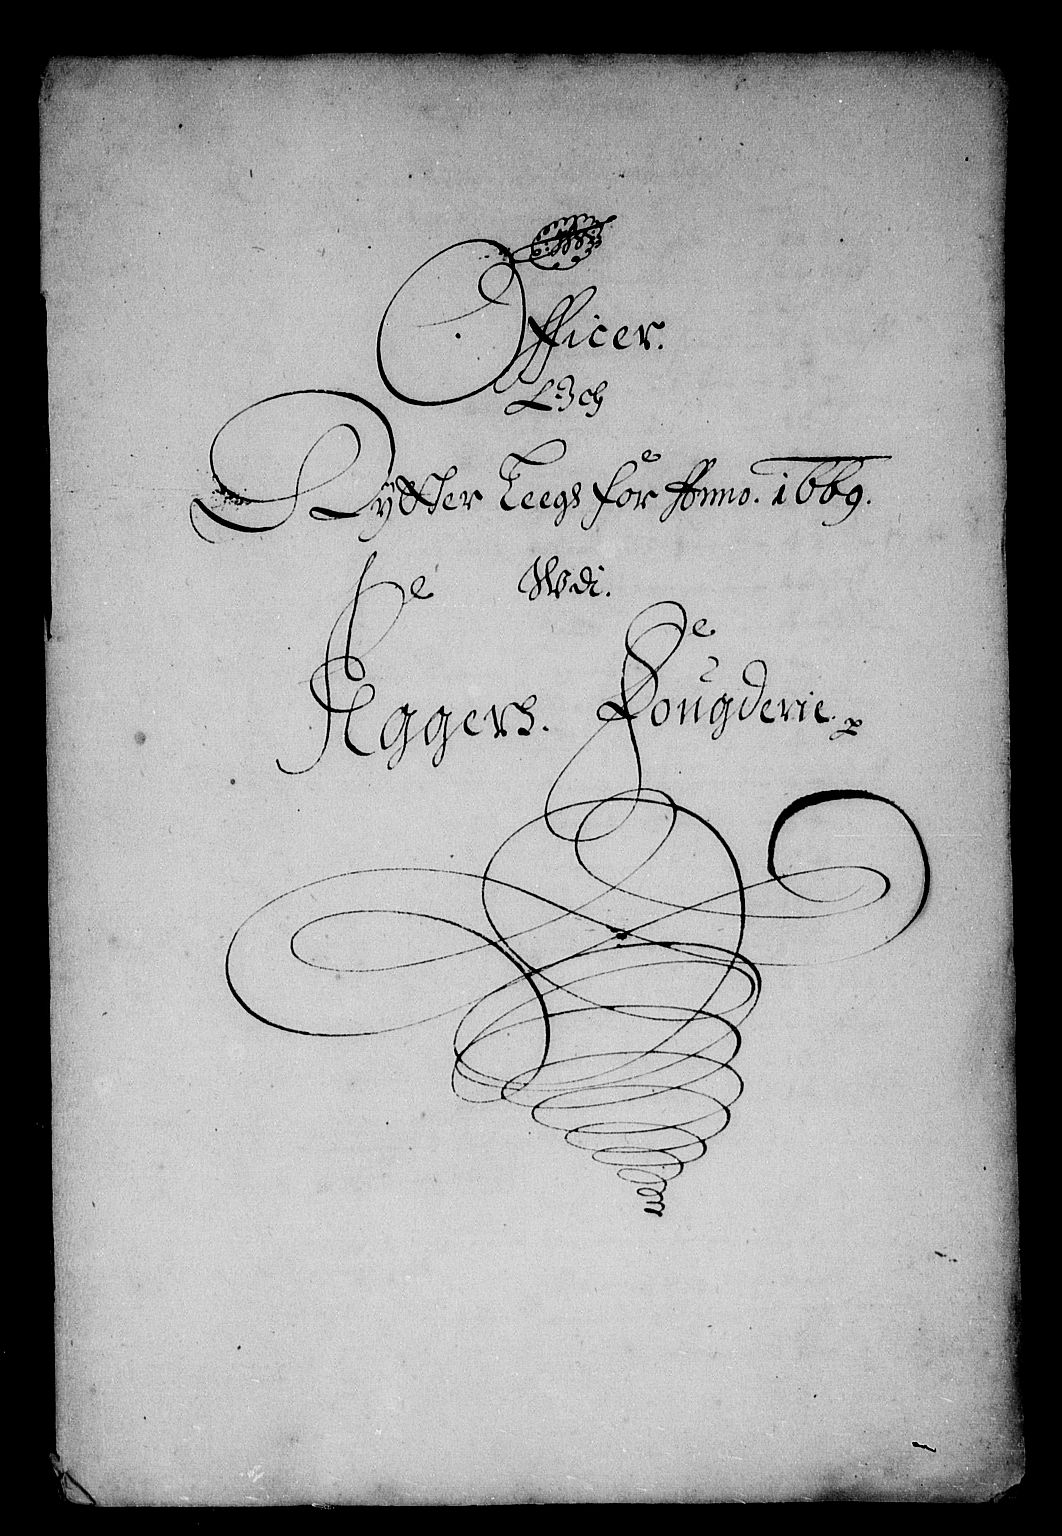 Officer.
Och
Rytter Leegs for Anno. 1669.
Wdi.
Aggers. Fougderie.